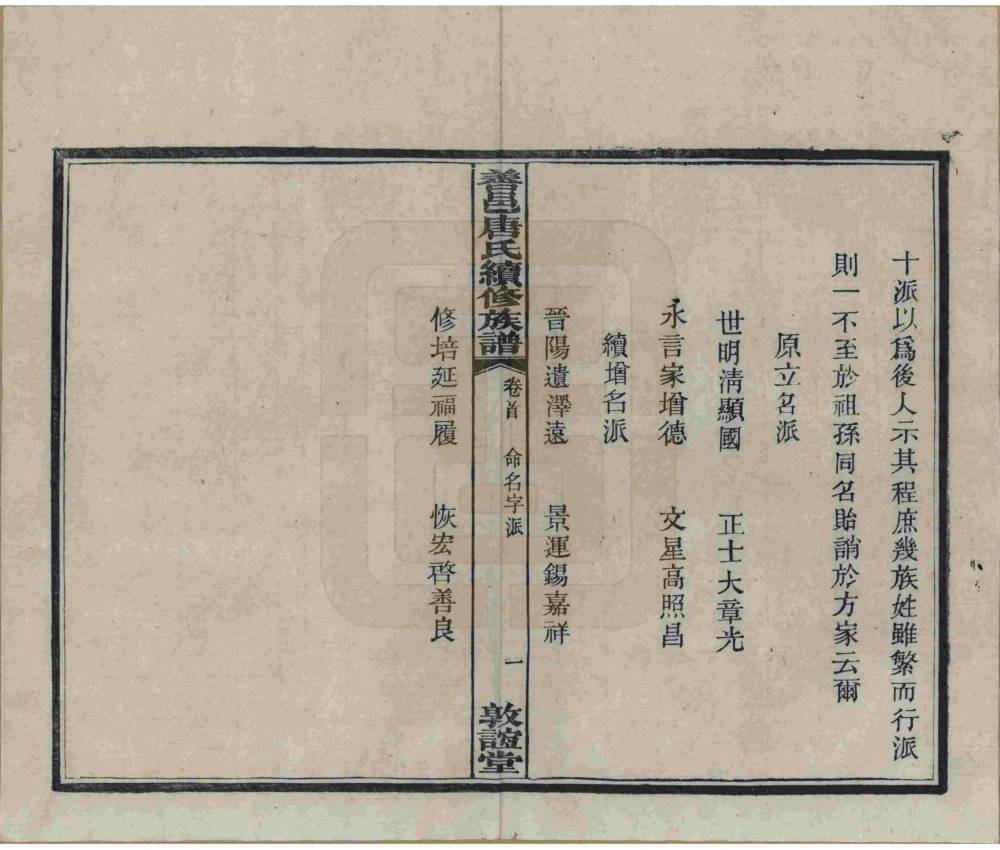 十派以爲後人示其程庶幾族姓雖繁而行派
則一不至於祖孫同名貽誚於方家云爾
原立名派
世明清顯國　正士大章光
永言家增德　文星高照昌
續增名派
晉陽遺澤遠　景運錫嘉祥
善邑唐氏續修族譜　卷首　命名字派　一　敦誼堂
修培延福履　恢宏啓善良